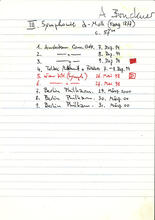 A Bruckner
III. Symphonie d-Moll (Fassg 1877)
c. 57'
1. Amsterdam Conc. Geb. 7. Dez. 94
2. " " " 8. Dez. 94
3. " " " 9. Dez. 94
4. 8. Dez. 94
5. 26. Mai 98
6. " " 27. Mai 98
7. Berlin Philharm. 29. März 2000
8. Berlin Philharm. 30. März 00
9. Berlin Philharm. 31. März 00